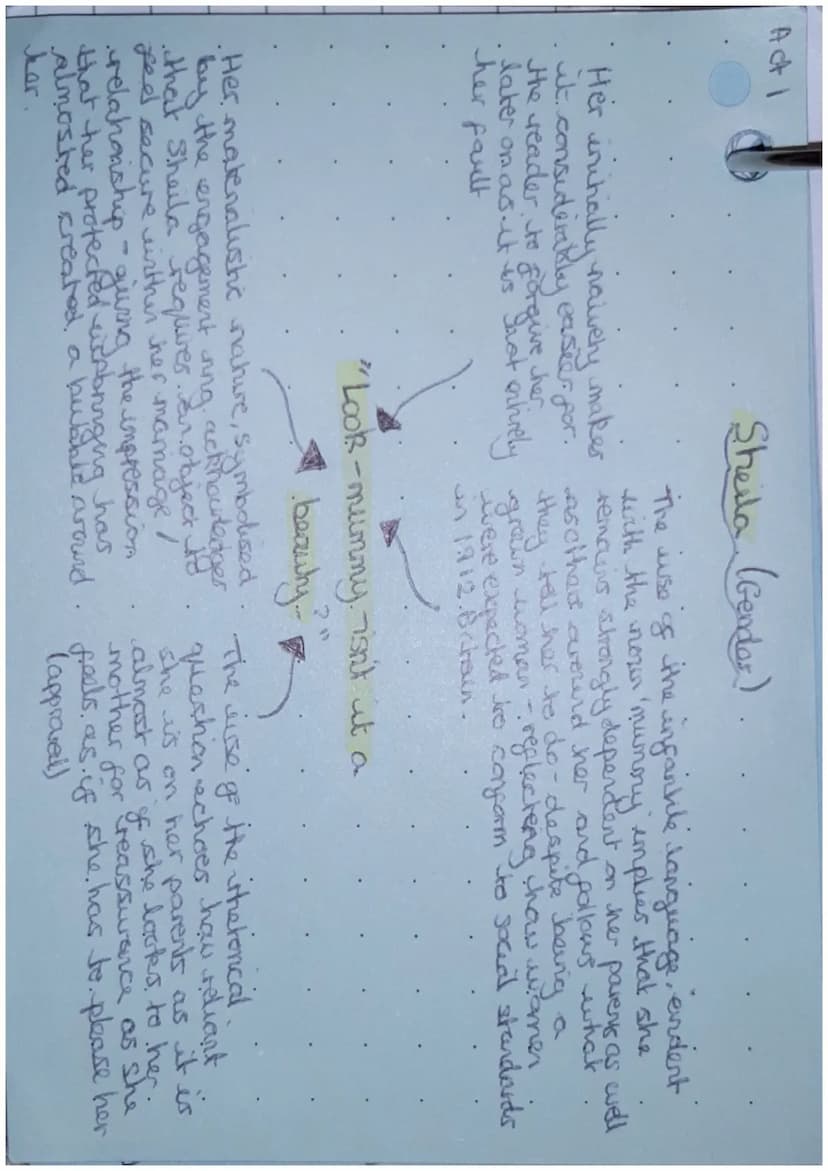 Act 1
Sheila (Gender)
Her initially naivety makes
it considerably easier for
the reader to forgive her
later on as it is not entirely
her fault
The use of the infantile language, evident
with the noun 'mummy' implies that she
remains strongly dependent on her parents as well
as others around her and follows what
they tell her to do - despite being a
grown woman - reflecting how women
were expected to conform to social standards
in 1912 Britain.
"Look - mummy - isn't it a
beauty..?"
Her materialistic nature, symbolised
by the engagement ring, acknowledges
that Sheila requires an object to
feel secure within her marriage /
relationship - giving the impression
that her protected upbringing has
almosted created a bubble around
her.
The use of the rhetorical
question echoes how reliant
she is on her parents as it is
almost as if she looks to her
mother for reassurance as she
feels as if she has to please her
(approval)